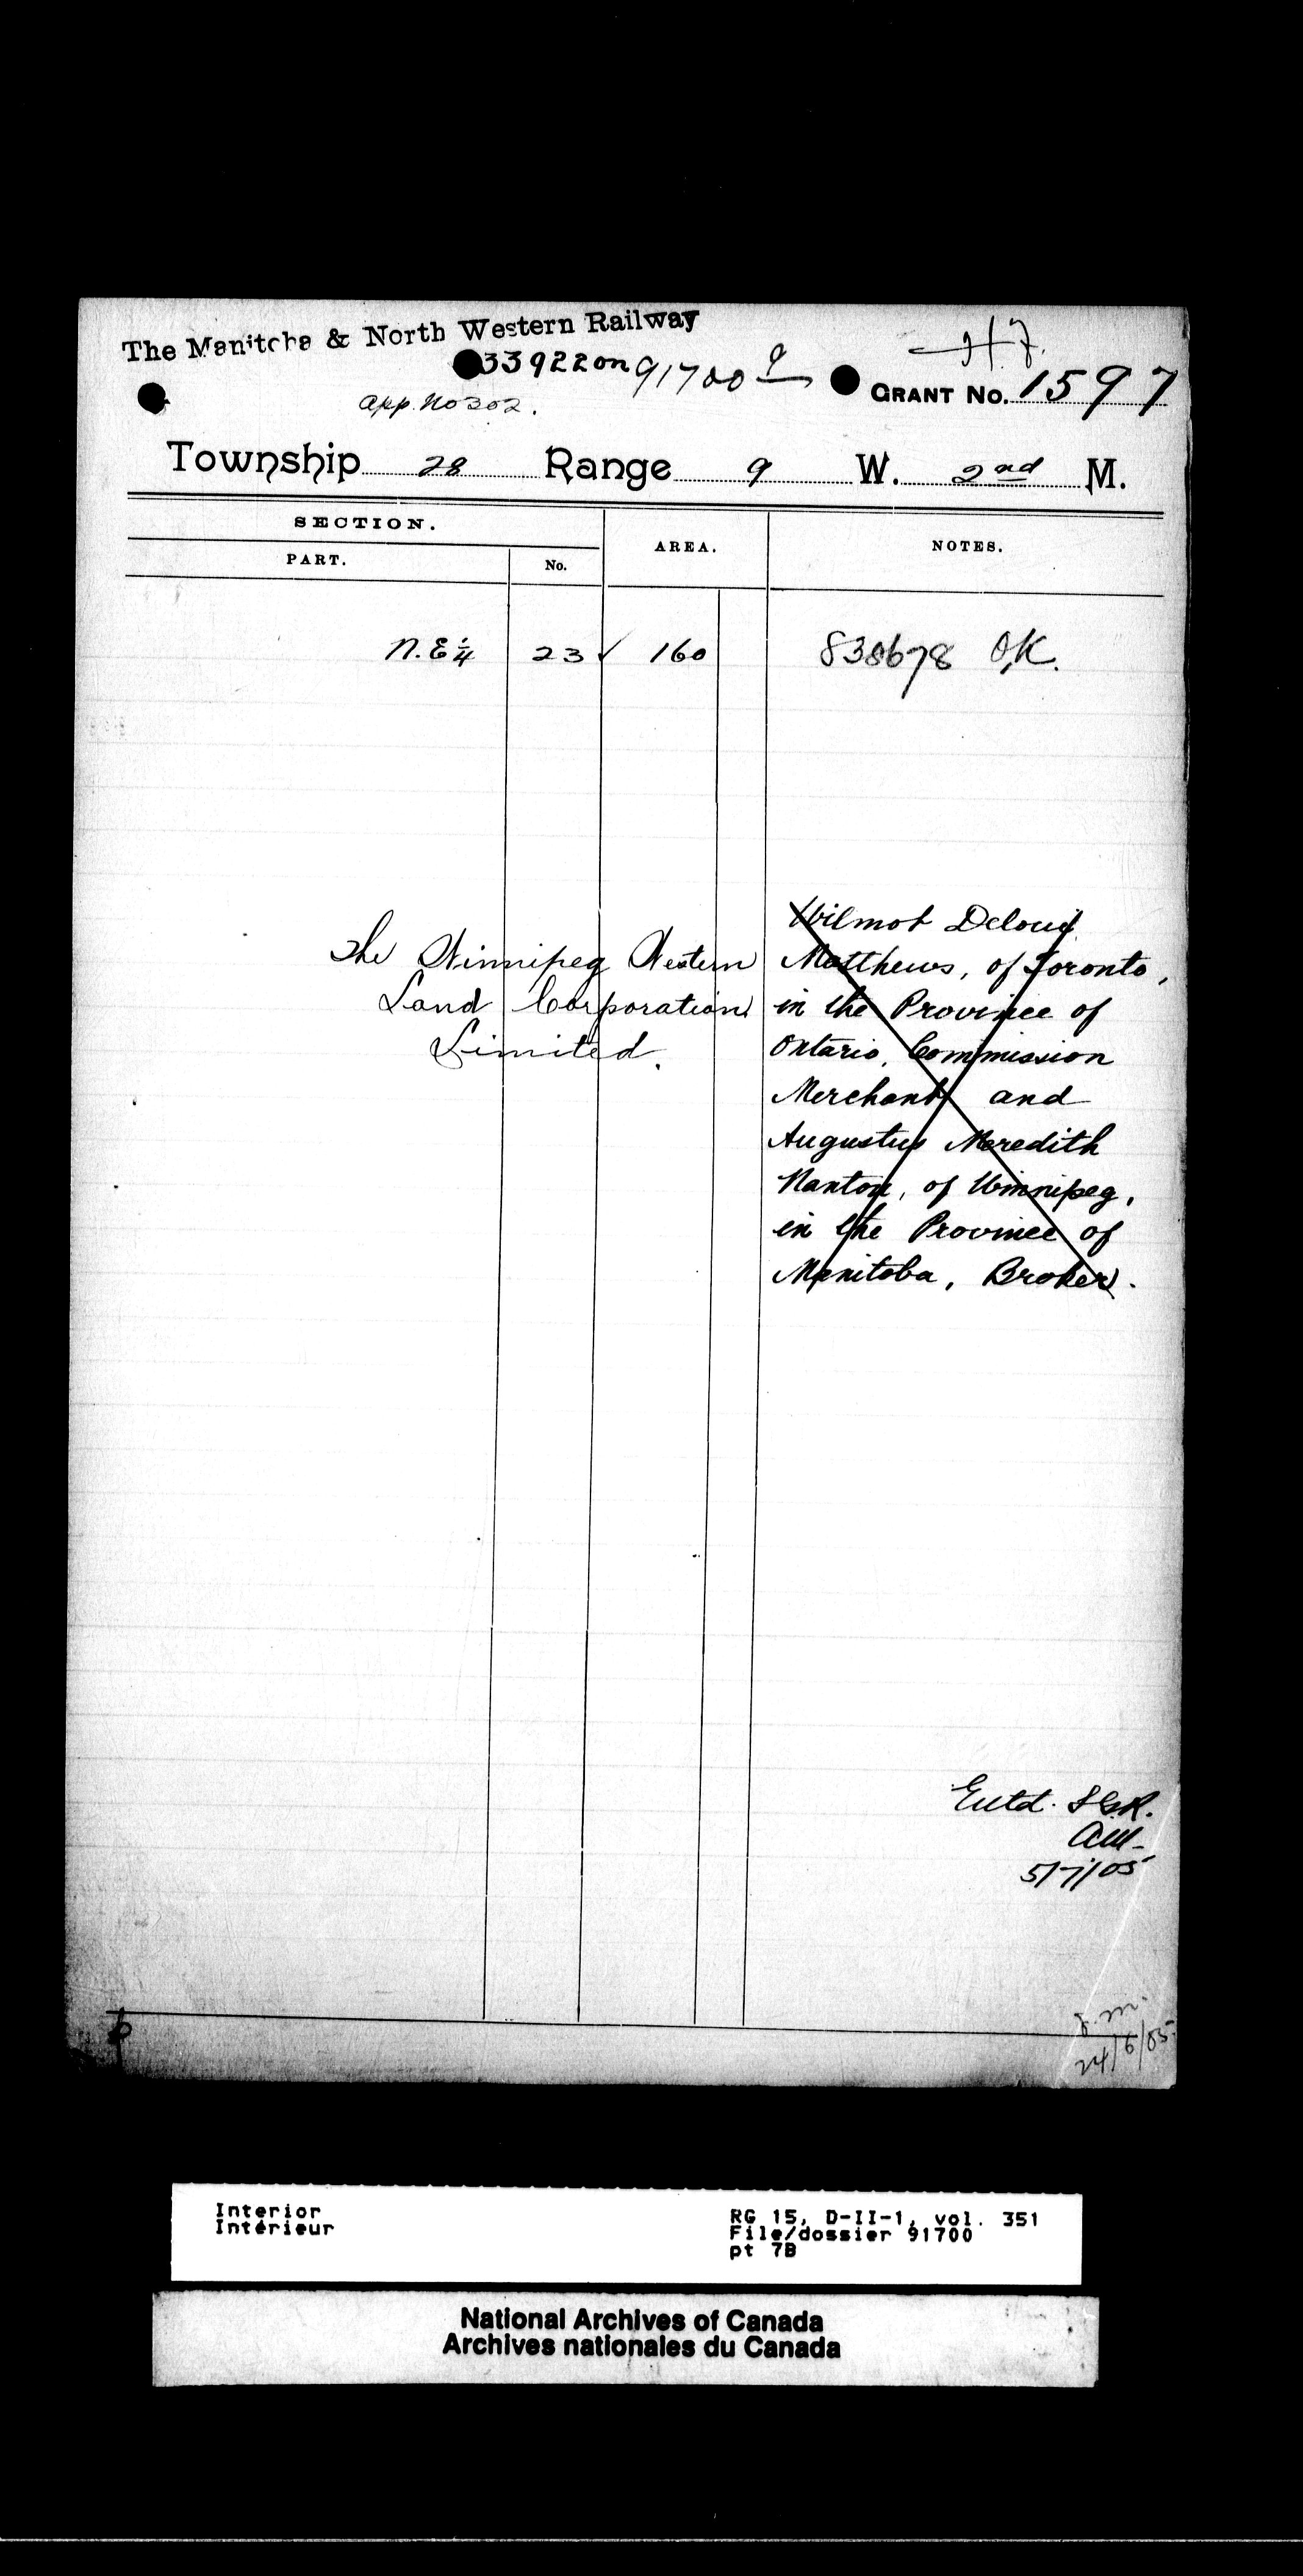 The Manitoba & North Western Railway
33922 on 91700
GRANT No. 1597
app. no 302.
Township 28 Range 9 W. 2nd M.
SECTION.
PART.
No.
AREA.
NOTES.
N.E ¼ 23 ✓ 160 838678 O.K.
The Winnipeg Western
Land Corporation
Limited.
Wilmot Deloui
Matthews, of Toronto,
in the Province of
Ontario, Commission
Merchant and
Augustus Meredith
Nanton, of Winnipeg,
in the Province of
Manitoba, Broker.
Entd. S.G.R.
5/7/05
24/6/05
Interior
Intérieur
RG 15, D-II-1, vol. 351
File/dossier 91700
pt 7B
National Archives of Canada
Archives nationales du Canada